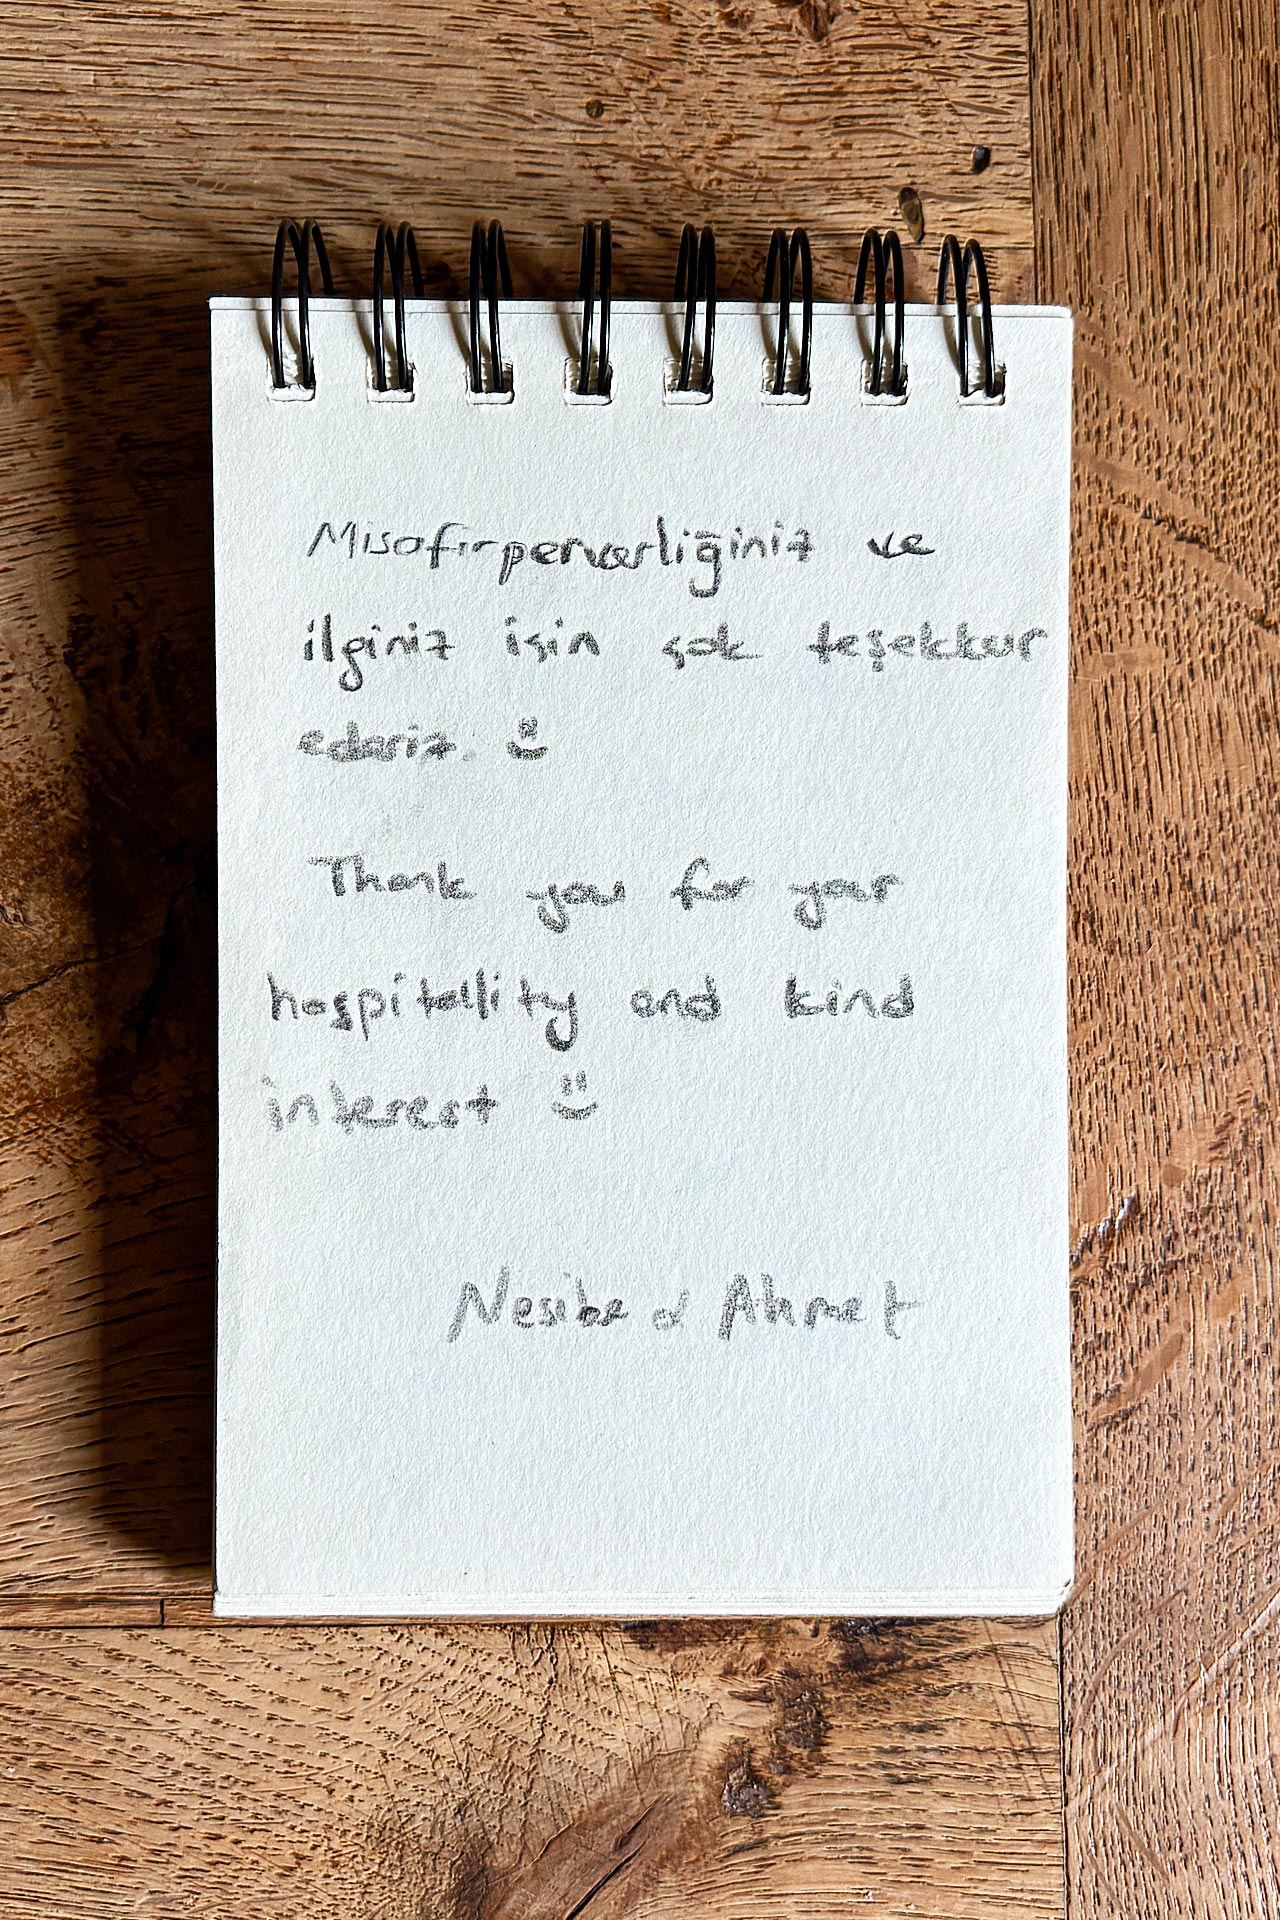 Misafirperverliğiniz ve
ilginiz için çok teşekkür
ederiz. :)
Thank you for your
hospitallity and kind
interest :)
Nesibe & Ahmet